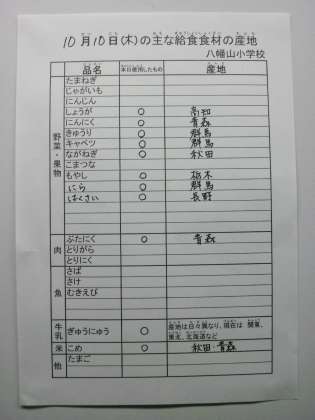 10月10日(木)の主な給食食材の産地
八幡山小学校
品名 本日使用したもの 産地
野菜・果物
たまねぎ
じゃがいも
にんじん
しょうが ○ 高知
にんにく ○ 青森
きゅうり ○ 群馬
キャベツ ○ 群馬
ながねぎ ○ 秋田
こまつな
もやし ○ 栃木
にら ○ 群馬
はくさい ○ 長野
肉
ぶたにく ○ 青森
とりがら
とりにく
魚
さば
さけ
むきえび
牛乳
ぎゅうにゅう ○ 産地は日々異なり、現在は 関東、
東北、北海道など
米 こめ ○ 秋田・青森
他 たまご